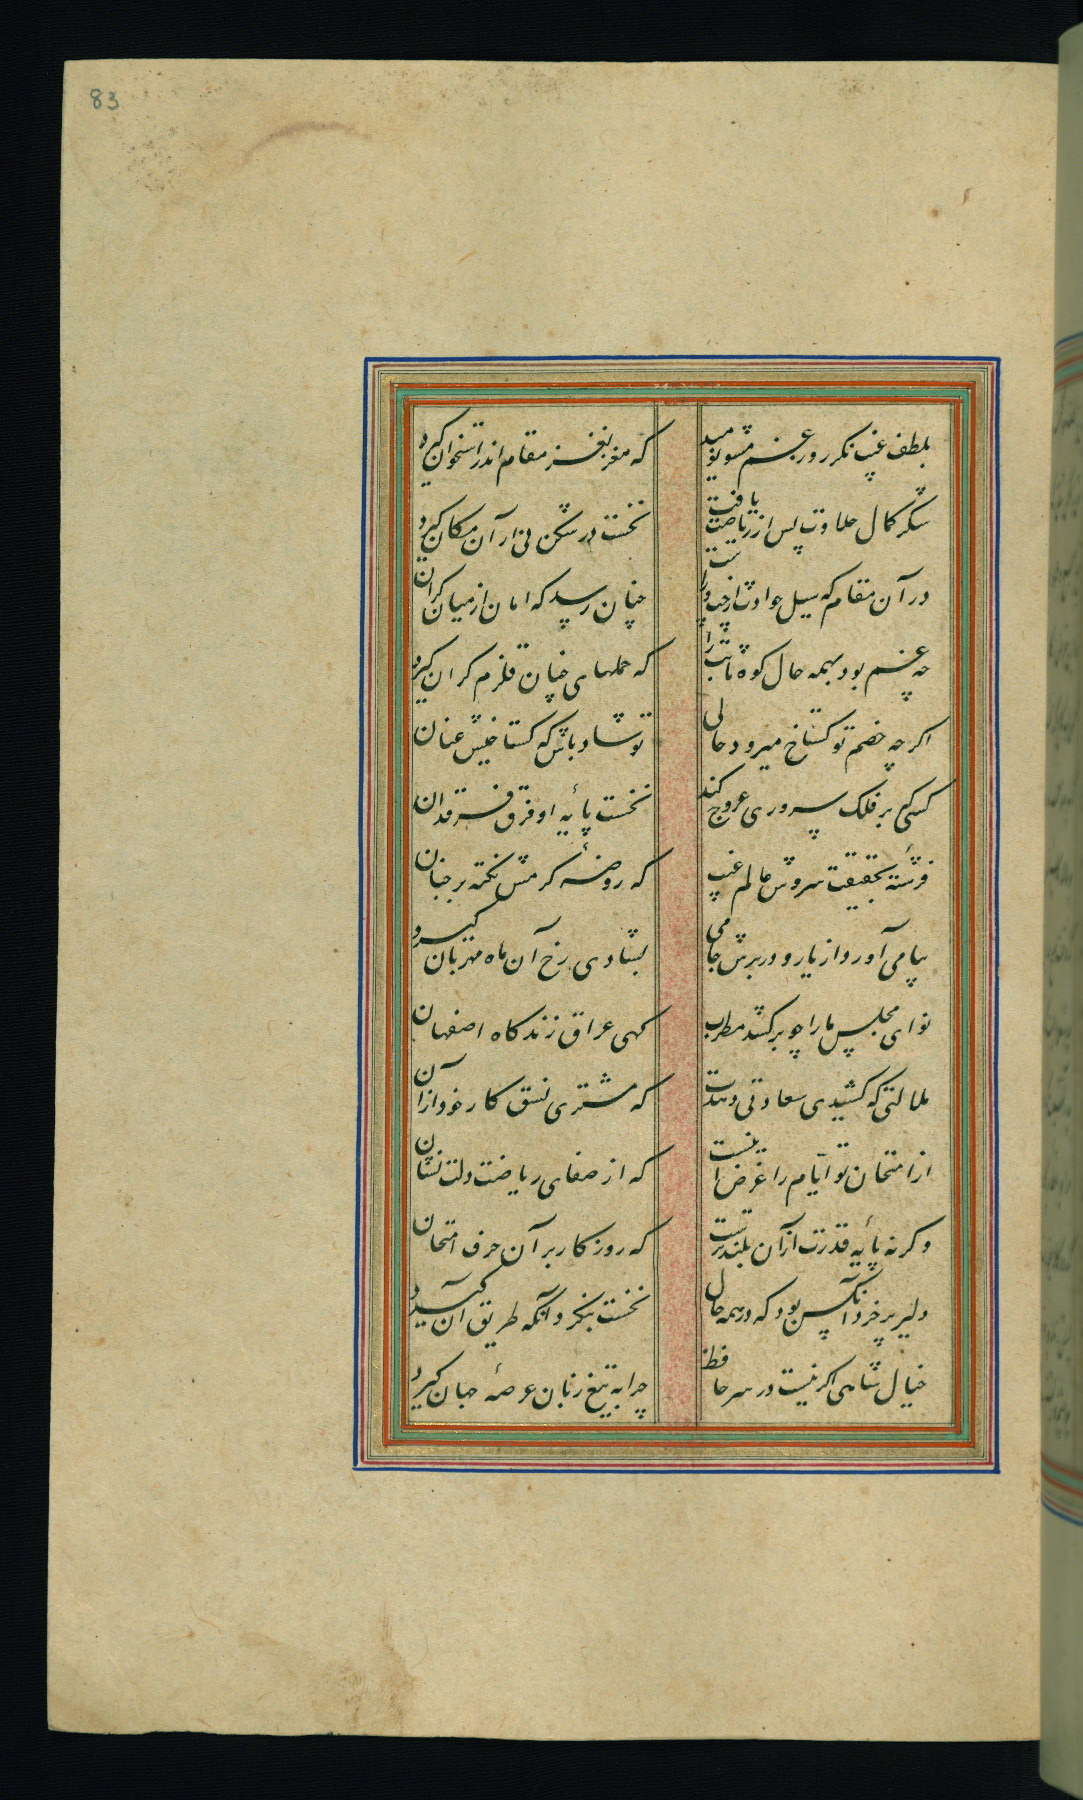 83
بلطف غیب نگر روز غم مشو نومید
که مغز نغز مقام اندر استخوان گیرد
شکر کمال حلاوت پس از ریاضت یافت
نخست در شکن نی از آن مکان گیرد
در آن مقام که سیل حوادث از چپ و راست
چنان رسد که امان از میان کران
چه غم بود بهمه حال کوه ثابت را
که حملهای چنان قلزم گران گیرد
اگر چه خصم تو گستاخ میرود حالی
تو شاد باش که گستاخیش عنان
کسی بر فلک سروری عروج کند
نخست پایۀ او فرق فرقدان
فرشتۀ بحقیقت سروش عالم غیب
که روضۀ کرمش نکته بر جنان
پیامی آورد از یار و در برش جامی
بشادی رخ آن ماه مهربان گیرد
نوای مجلس ما را چو برکشد مطرب
گهی عراق زند گاه اصفهان
ملالتی که کشیدی سعادتی دهدت
که مشتری نسق کار خود از آن
از امتحان تو ایام را غرض اینست
که از صفای ریاضت دلت نشان
وگرنه پایۀ قدرت از آن بلندترست
که روزگار بر آن حرف امتحان
دلیر پر خرد آنکس بود که در همه حال
نخست بنگرد آنگه طریق آن گیرد
خیال شاهی اگر نیست در سر حافظ
چرا به تیغ زبان عرصۀ جهان گیرد